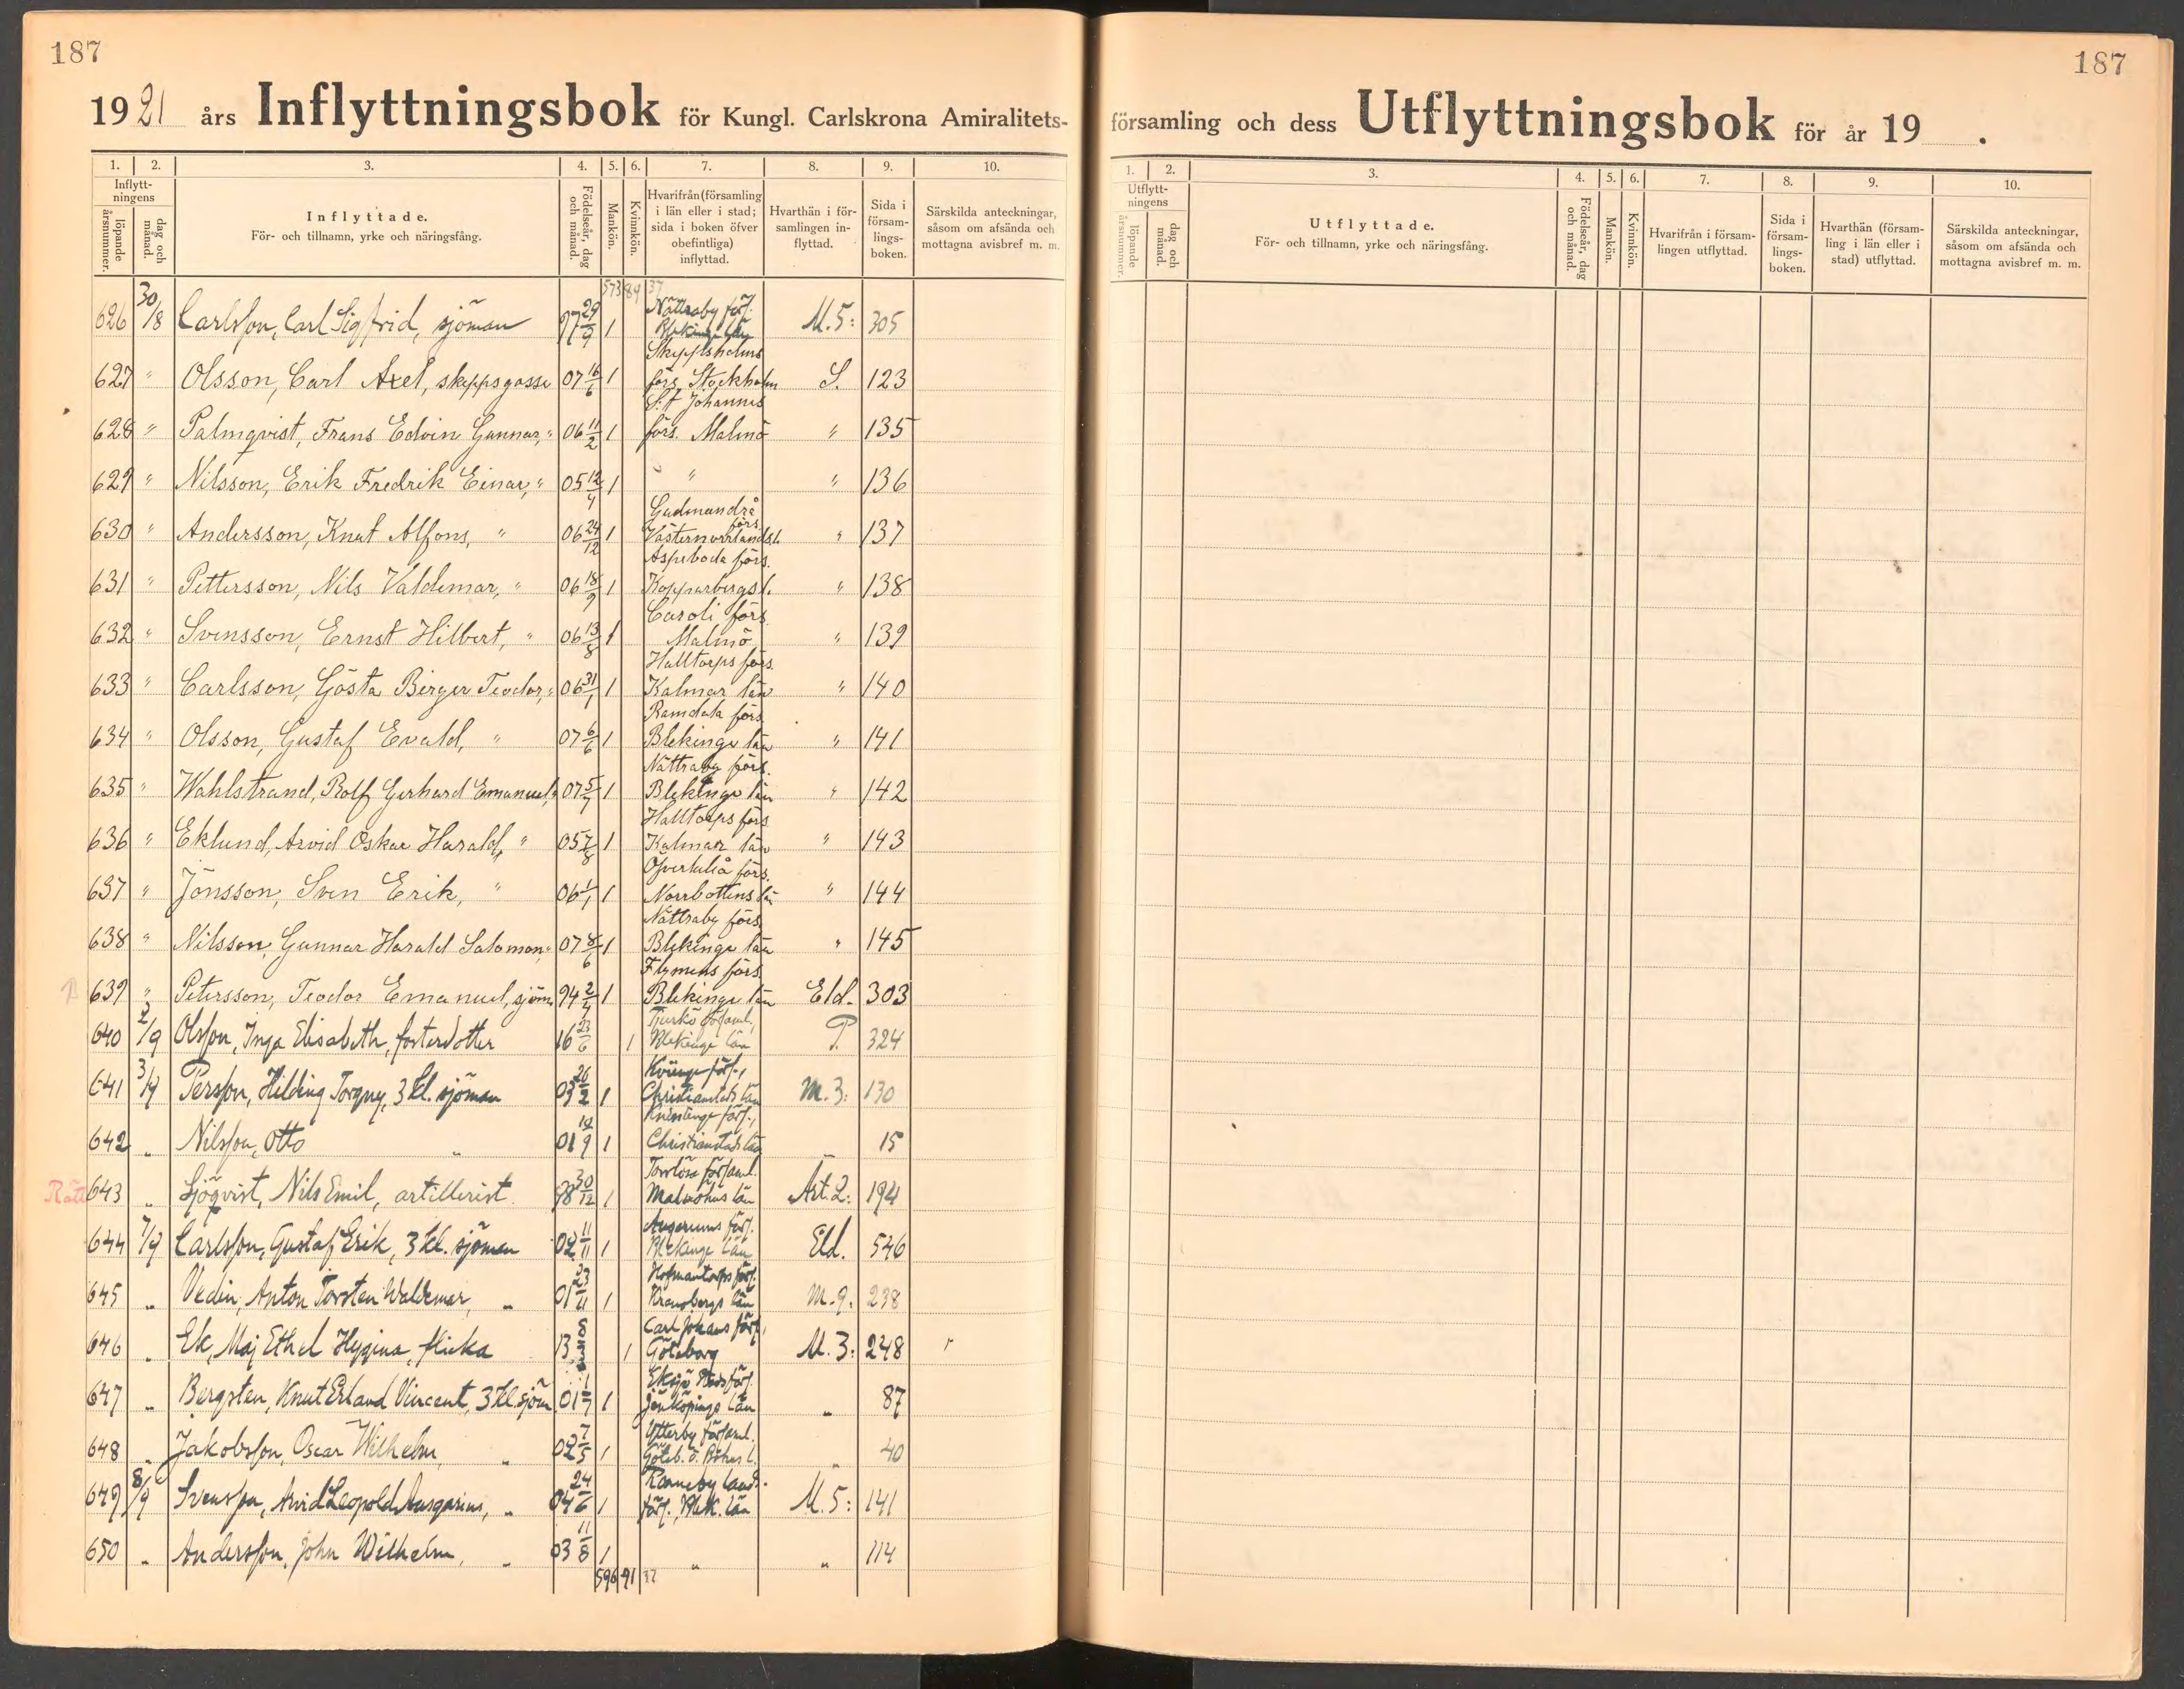 187
187
1921 års Inflyttningsbok för Kungl. Carlskrona Amiralitets-
församling och dess Utflyttningsbok för år 19 .
1. 2. 3. 4. 5. 6. 7. 8. 9. 10.
Inflytt-
ningens
löpande årsnummer.
dag och månad.
Inflyttade.
För- och tillnamn, yrke och näringsfång.
Födelseår, dag och månad.
Mankön.
Kvinnkön.
Hvarifrån (församling
i län eller i stad;
sida i boken öfver
obefintliga)
inflyttad.
Hvarthän i för-
samlingen in-
flyttad.
Sida i
försam-
lings-
boken.
Särskilda anteckningar,
såsom om afsända och
mottagna avisbref m. m.
1. 2. 3. 4. 5. 6. 7. 8. 9. 10.
Utflytt-
ningens
löpande årsnummer.
dag och månad.
Utflyttade.
För- och tillnamn, yrke och näringsfång.
Födelseår, dag och månad.
Mankön.
Kvinnkön.
Hvarifrån i försam-
lingen utflyttad.
Sida i
försam-
lings-
boken.
Hvarthän (försam-
ling i län eller i
stad) utflyttad.
Särskilda anteckningar,
såsom om afsända och
mottagna avisbref m. m.
573 89 37
626 30/8 Carlsson, Carl Sigfrid, sjöman 97 29/9 1 Nättraby förs. Blekinge län M. 5: 305
627 " Olsson, Carl Axel, skeppsgosse 07 16/6 1 Skeppsholms förs. Stockholm S. 123
628 " Palmqvist, Frans Edvin Gunnar, " 06 11/2 1 S:t Johannes förs. Malmö " 135
629 " Nilsson, Erik Fredrik Einar, " 05 12/4 1 " " 136
630 " Andersson, Knut Alfons, " 06 24/12 1 Gudmundrå förs. Västernorrlands l. " 137
631 " Pettersson, Nils Valdemar, " 06 18/9 1 Aspeboda förs. Kopparbergs l. " 138
632 " Svensson, Ernst Hilbert, " 06 13/8 1 Caroli förs. Malmö " 139
633 " Carlsson, Gösta Birger Teodor, " 06 31/1 1 Halltorps förs. Kalmar län " 140
634 " Olsson, Gustaf Evald, " 07 6/6 1 Ramdala förs. Blekinge län " 141
635 " Wahlstrand, Rolf Gerhard Emanuel, " 07 5/7 1 Nättraby förs. Blekinge län " 142
636 " Eklund, Arvid Oskar Harald, " 05 7/8 1 Halltorps förs. Kalmar län " 143
637 " Jönsson, Sven Erik, " 06 1/1 1 Öfverluleå förs. Norrbottens län " 144
638 " Nilsson, Gunnar Harald Salomon, " 07 8/6 1 Nättraby förs. Blekinge län " 145
639 " Petersson, Teodor Emanuel, sjöm. 94 2/4 1 Flymens förs. Blekinge län Eld. 303
640 2/9 Olsson, Inga Elisabeth, fosterdotter 16 23/6 1 Tjurkö församl., Blekinge län P. 324
641 3/9 Persson, Hilding Torgny, 3 kl. sjöman 03 26/2 1 Kviinge förs., Christianstads län M. 3: 130
642 " Nilsson, Otto " 01 14/9 1 Knislinge förs., Christianstads län 15
Rätt 643 " Sjöqvist, Nils Emil, artillerist 98 30/12 1 Torrlösa församl. Malmöhus län Art. 2: 194
644 7/9 Carlsson, Gustaf Erik, 3 kl. sjöman 02 11/11 1 Augerums förs. Blekinge län Eld. 546
645 " Vedin, Anton Torsten Waldemar, " 01 23/11 1 Hofmantorps förs. Kronobergs län M. 9. 238
646 " Ek, Maj Ethel Hygina, flicka 13 8/3 1 Carl Johans förs., Göteborg M. 3: 248
647 " Bergsten, Knut Erland Vincent, 3 kl. sjöm. 01 1/7 1 Eksjö Stadsförs. Jönköpings län " 87
648 " Jakobsson, Oscar Wilhelm, " 02 7/5 1 Ytterby församl. Göteb. o. Bohus l. " 40
649 8/9 Svensson, Arvid Leopold Ansgarius, " 04 24/6 1 Ronneby lands-förs., Blek. län M. 5: 141
650 " Andersson, John Wilhelm, " 03 11/8 1 " " 114
596 91 37